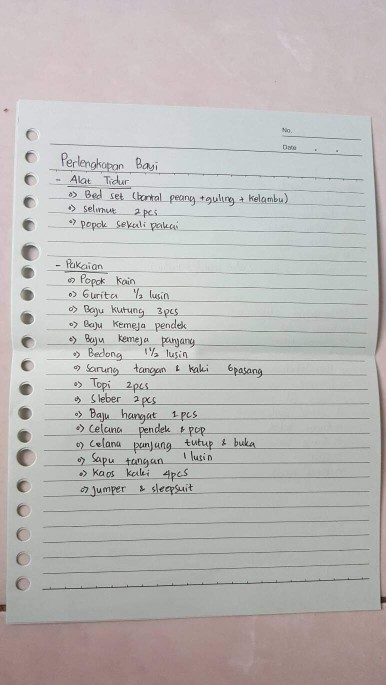 No.
Date . .
Perlengkapan Bayi
- Alat Tidur
=> Bed set (bantal peang + guling + kelambu)
=> selimut 2 pcs
=> popok sekali pakai
- Pakaian
=> Popok kain
=> Gurita 1/2 lusin
=> Baju kutung 3 pcs
=> Baju kemeja pendek
=> Baju kemeja panjang
=> Bedong 1 1/2 lusin
=> sarung tangan & kaki 6 pasang
=> Topi 2 pcs
=> Sleber 2 pcs
=> Baju hangat 1 pcs
=> celana pendek & pop
=> celana panjang tutup & buka
=> Sapu tangan 1 lusin
=> Kaos kaki 4 pcs
=> jumper & sleepsuit